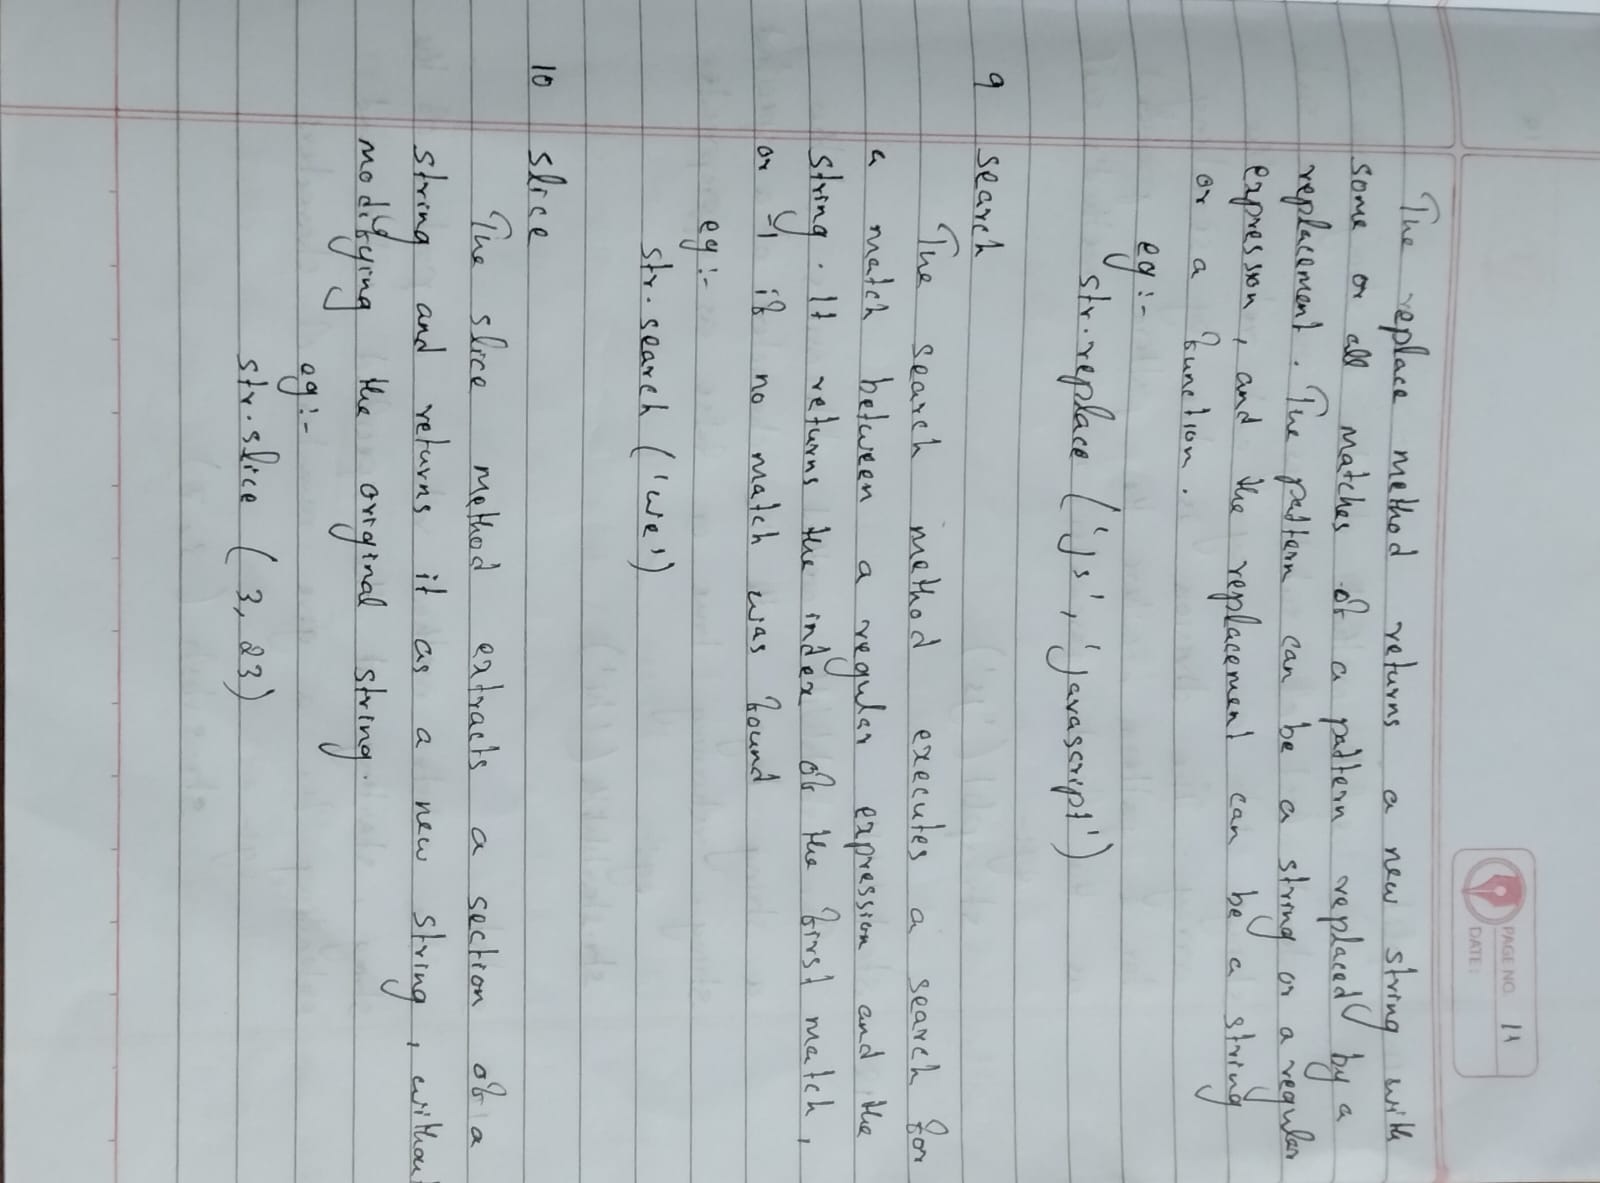 PAGE NO. 11
DATE:
The replace method returns a new string with
some or all matches of a pattern replaced by a
replacement. The pattern can be a string or a regular
expression, and the replacement can be a string
or a function.
eg:-
str.replace ('js', 'javascript')
9 search
The search method executes a search for
a match between a regular expression and the
string. It returns the index of the first match,
or -1 if no match was found
eg:-
str.search ('we')
10 slice
The slice method extracts a section of a
string and returns it as a new string, without
modifying the original string.
eg:-
str.slice (3, 23)